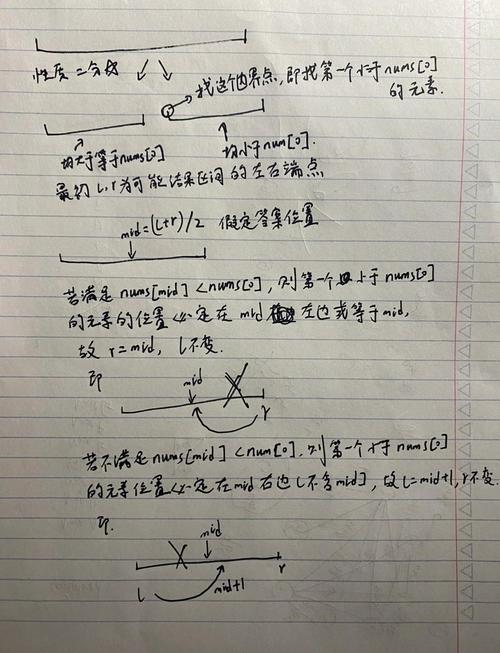 性质二分好
找这个边界点,即找第一个小于nums[0]
的元素.
均大于等于nums[0]
均小于num[0].
最初 l,r 为可能结果区间的左右端点
mid=(l+r)/2 假定答案位置
若满足 nums[mid] < nums[0], 则第一个小于nums[0]
的元素的位置必定在 mid 左边或等于mid,
故 r=mid, l不变.
即
mid
r
若不满足nums[mid] < num[0], 则第一个小于 nums[0]
的元素位置必定在mid右边(不含mid), 故 l=mid+1, r不变.
即.
mid
r
l
mid+1